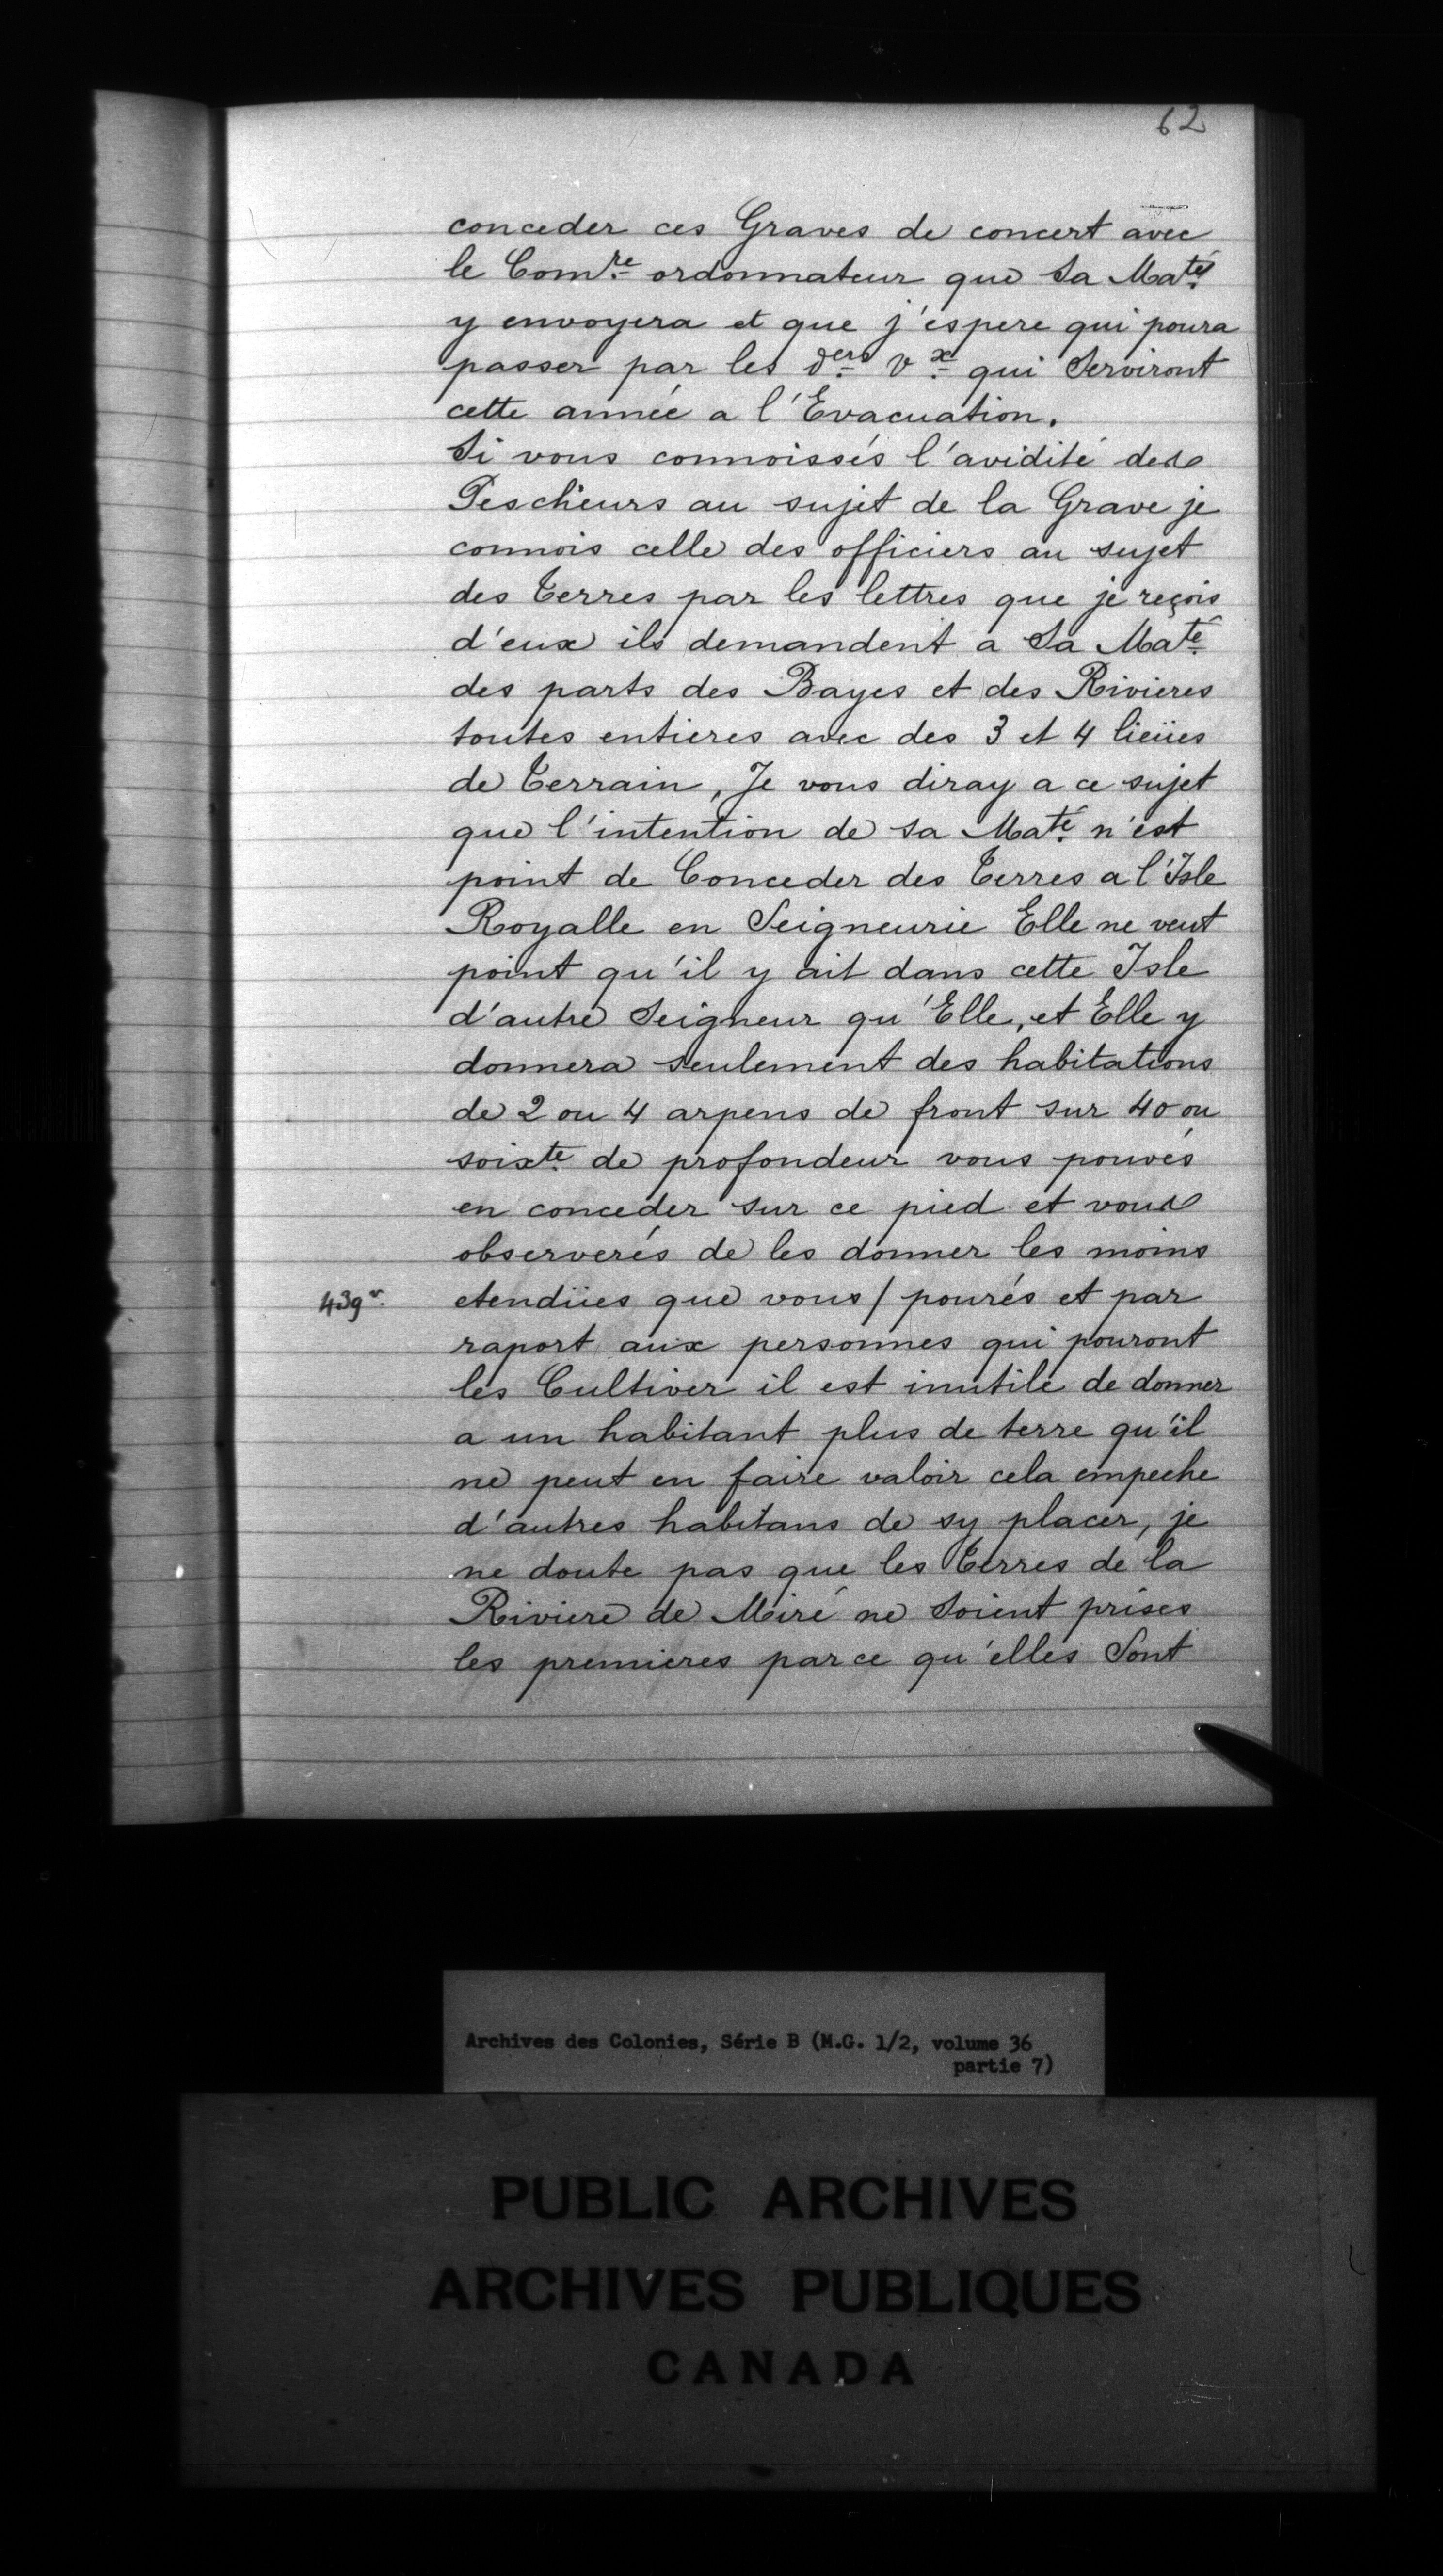 62
conceder ces Graves de concert avec
le Com.re ordonnateur que Sa Ma.té
y envoyera et que j'espere qui poura
passer par les d.ers v.x qui Serviront
cette année a l'Evacuation.
Si vous connoissés l'avidité des
Pescheurs au sujet de la Grave je
connois celle des officiers au sujet
des Terres par les lettres que je reçois
d'eux ils demandent a Sa Ma.té
des parts des Bayes et des Rivieres
toutes entieres avec des 3 et 4 lieües
de Terrain, Je vous diray a ce sujet
que l'intention de sa Ma.té n'est
point de Conceder des Terres a l'Isle
Royalle en Seigneurie Elle ne veut
point qu'il y ait dans cette Isle
d'autre Seigneur qu'Elle, et Elle y
donnera seulement des habitations
de 2 ou 4 arpens de front sur 40 ou
soix.te de profondeur vous pouvés
en conceder sur ce pied et vous
observerés de les donner les moins
439 v. etendües que vous / pourés et par
raport aux personnes qui pouront
les Cultiver il est inutile de donner
a un habitant plus de terre qu'il
ne peut en faire valoir cela empeche
d'autres habitans de sy placer, je
ne doute pas que les Terres de la
Riviere de Miré ne Soient prises
les premieres parce qu'elles Sont
Archives des Colonies, Série B (M.G. 1/2, volume 36
partie 7)
PUBLIC ARCHIVES
ARCHIVES PUBLIQUES
CANADA